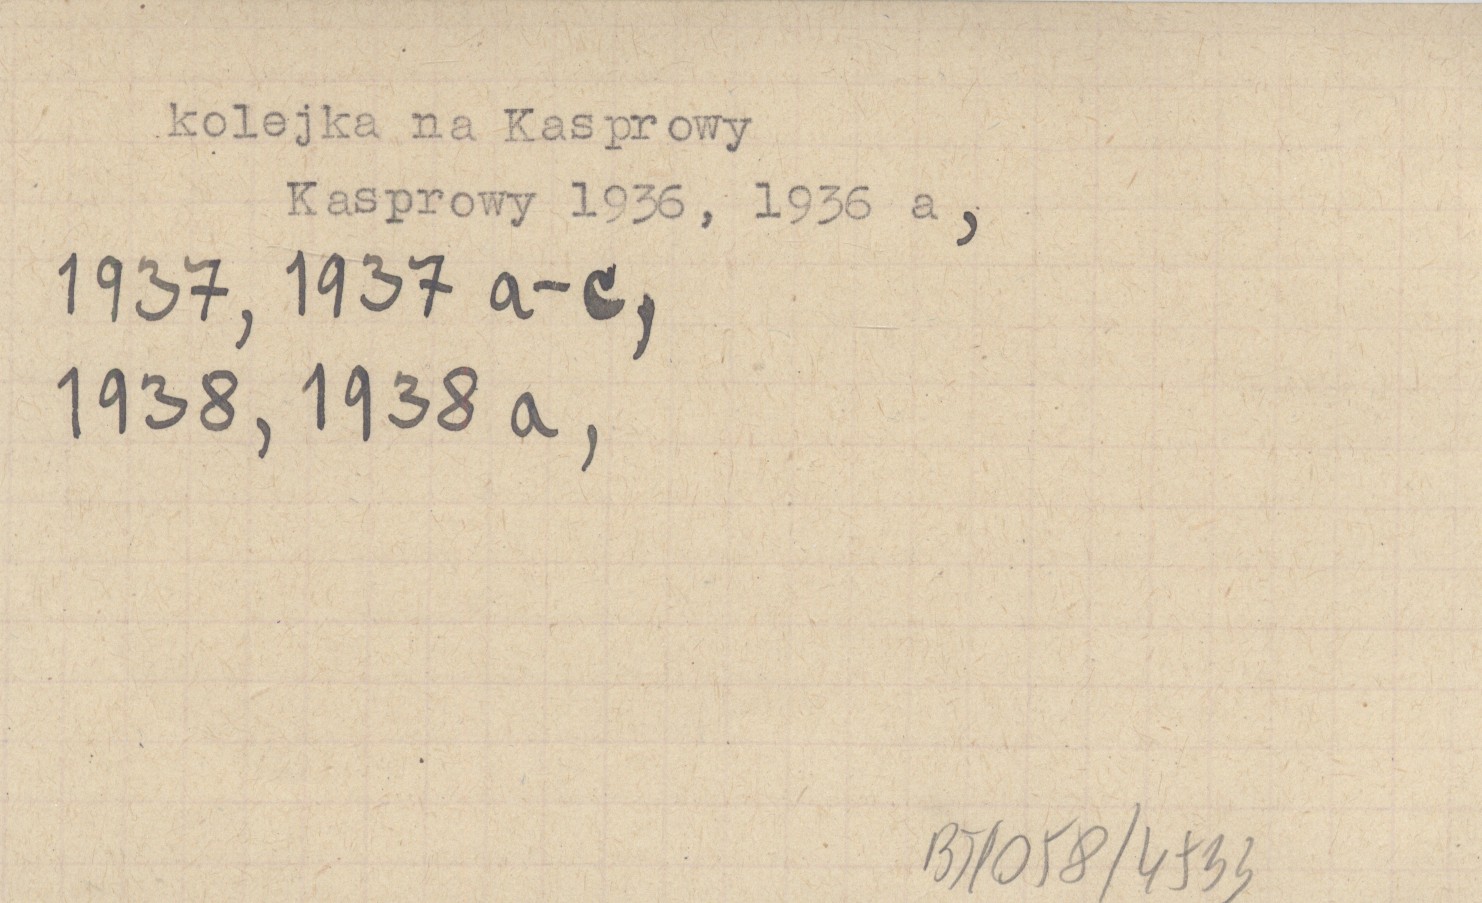 kolejka na Kasprowy
Kasprowy 1936, 1936 a,
1937, 1937 a-c,
1938, 1938 a,
BJ/1058/4533